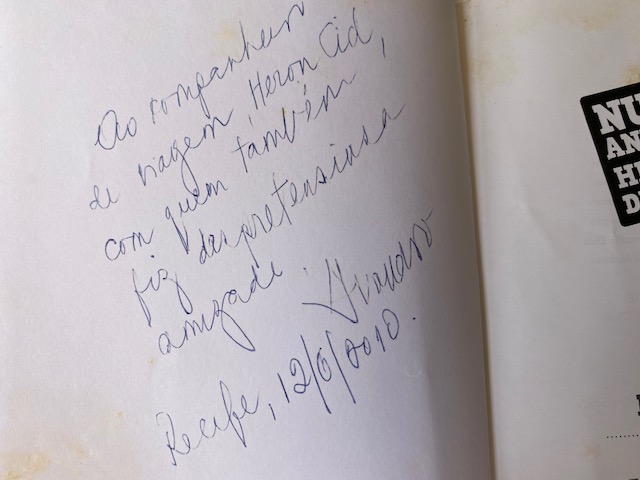 Ao companheiro
de viagem, Heron Cid,
com quem também
fiz despretensiosa
amizade.
Recife, 12/6/2010.
NU
AN
HI
D